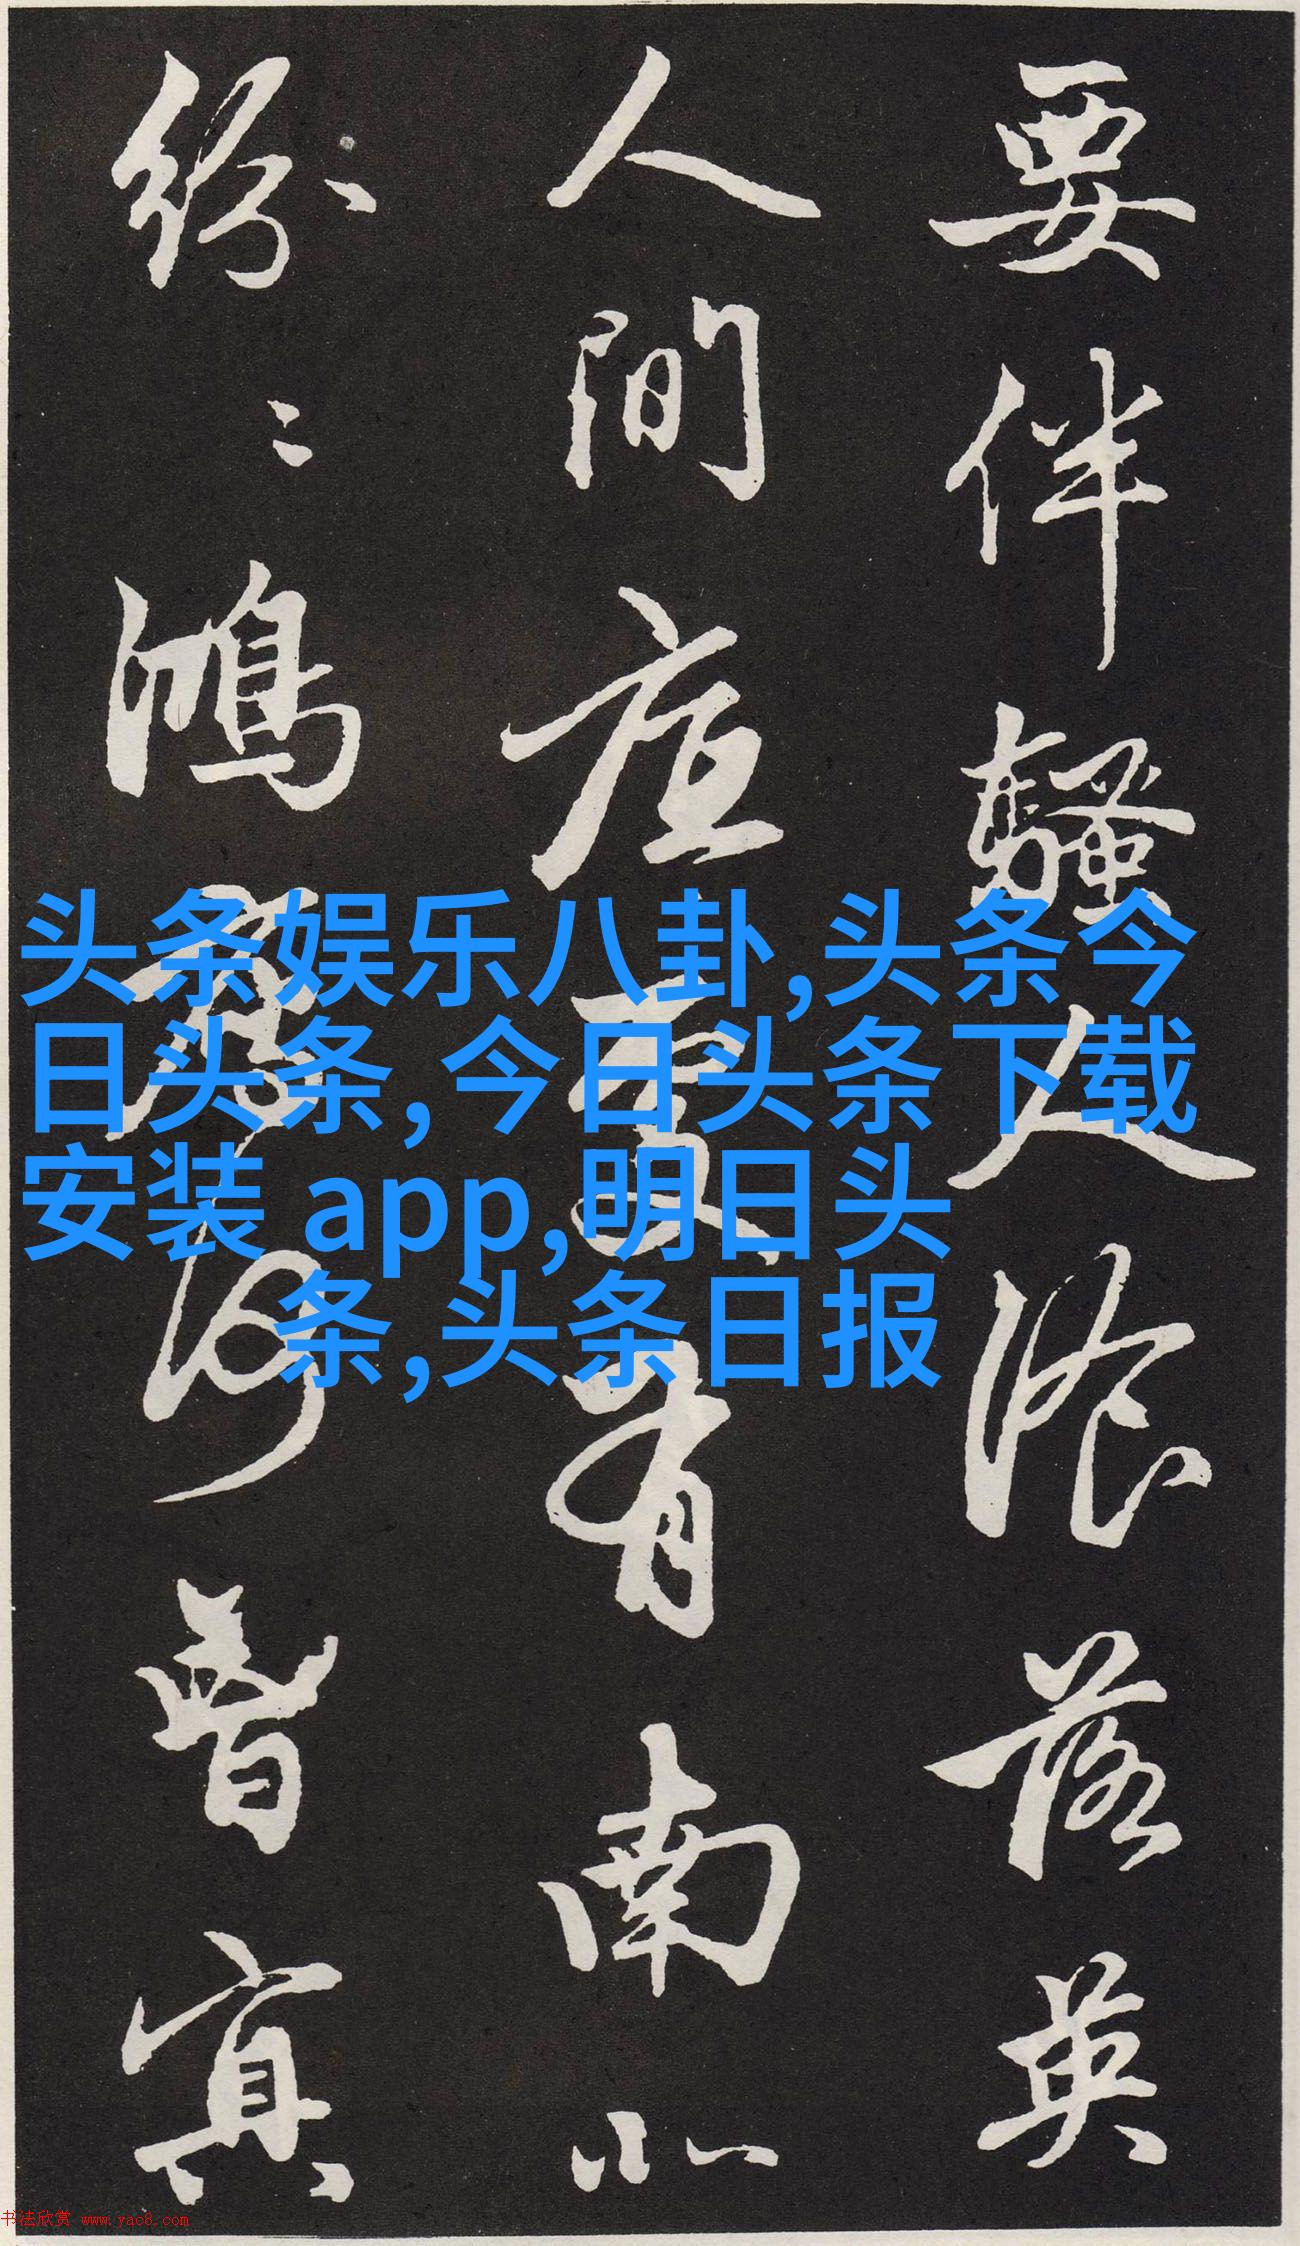 要伴騷人湌落英
人間底處有南北
紛〻鴻鴈何曾冥
头条娱乐八卦,头条今
日头条,今日头条下载
安装 app,明日头
条,头条日报
书法欣赏 www.yac8.com